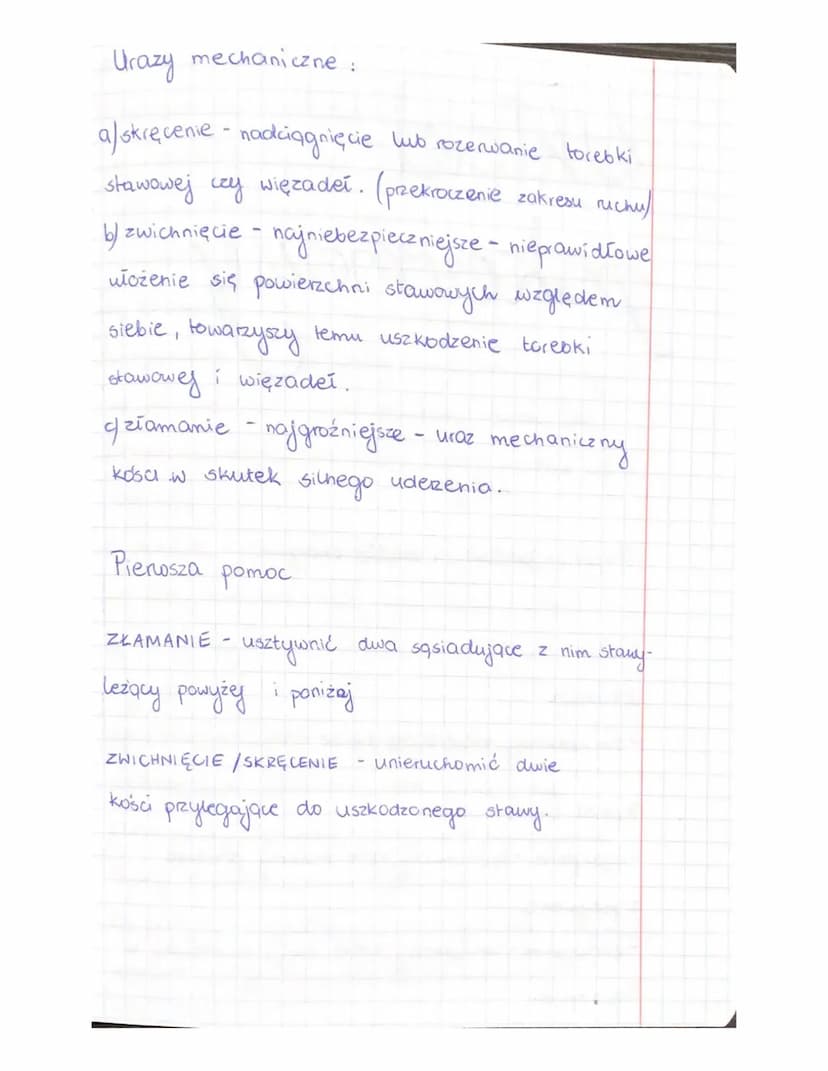 Urazy mechaniczne :
a) skręcenie - nadciągnięcie lub rozerwanie torebki
stawowej czy więzadeł. (przekroczenie zakresu ruchu)
b) zwichnięcie - najniebezpieczniejsze - nieprawidłowe
ułożenie się powierzchni stawowych względem
siebie, towarzyszy temu uszkodzenie torebki
stawowej i więzadeł.
c) złamanie - najgroźniejsze - uraz mechaniczny
kości w skutek silnego uderzenia.
Pierwsza pomoc
ZŁAMANIE - usztywnić dwa sąsiadujące z nim stawy-
leżący powyżej i poniżej
ZWICHNIĘCIE / SKRĘCENIE - unieruchomić dwie
kości przylegające do uszkodzonego stawy.